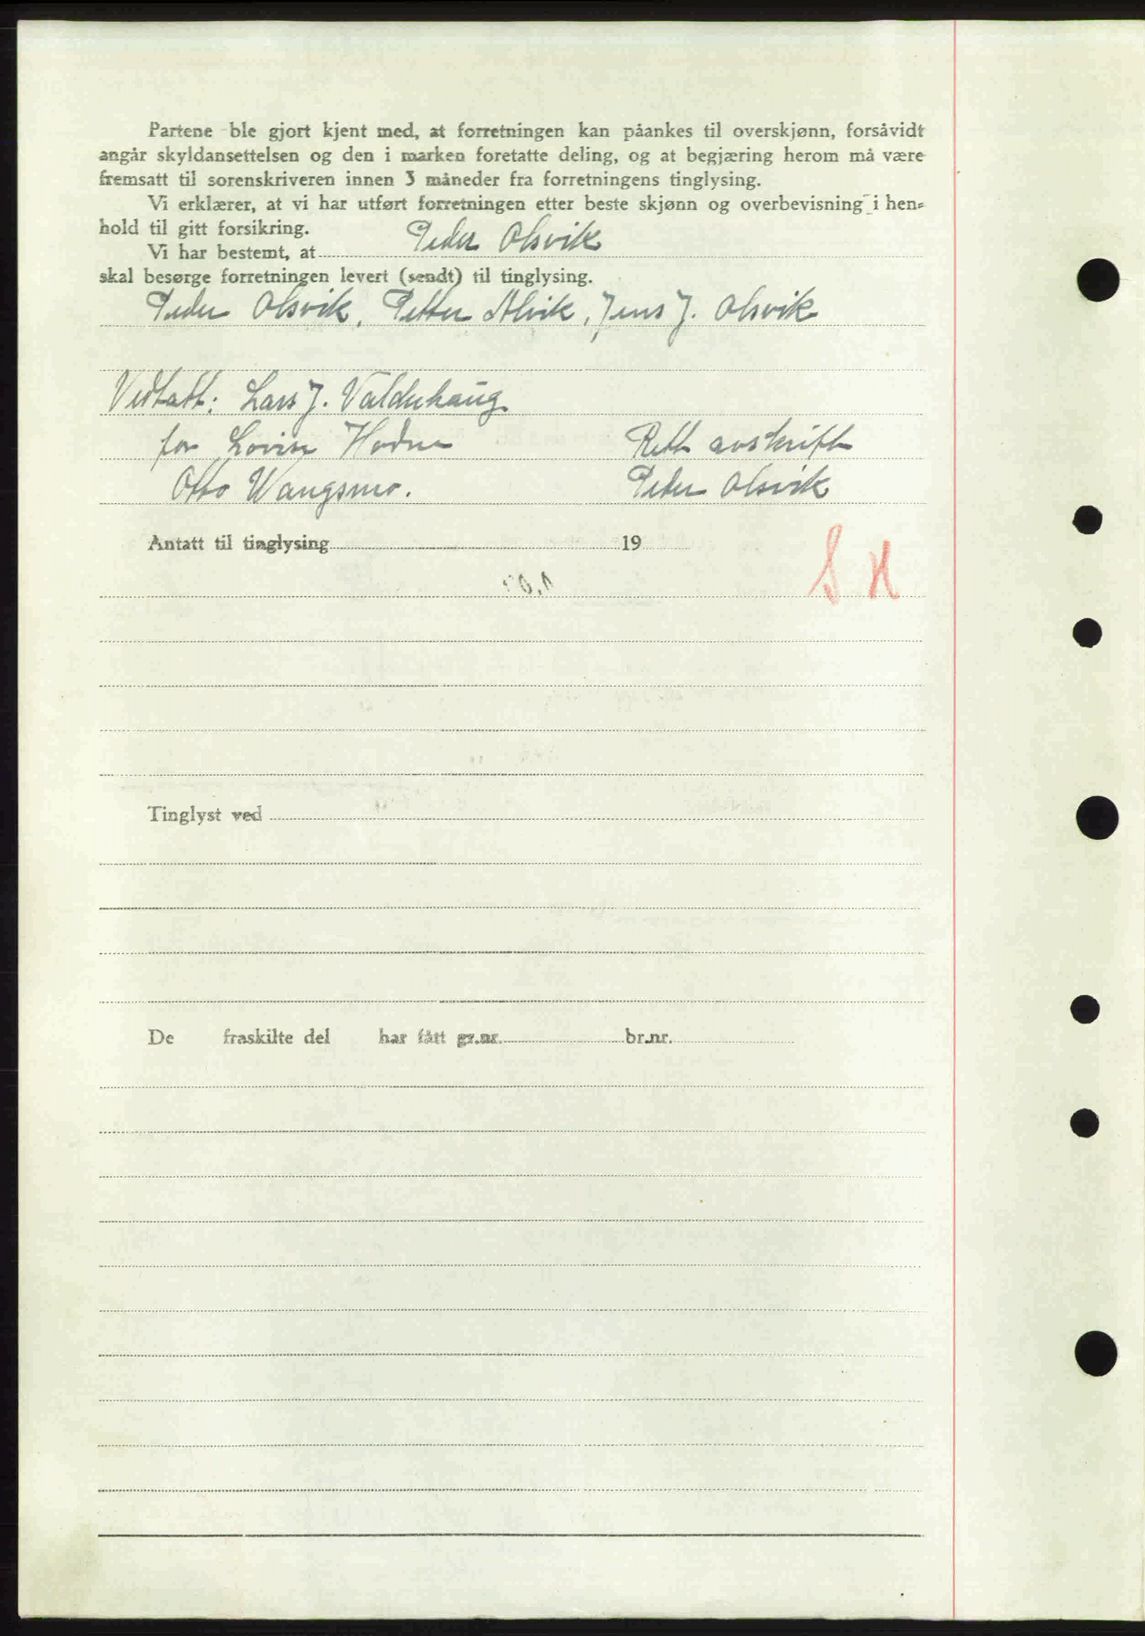 Partene ble gjort kjent med, at forretningen kan påankes til overskjønn, forsåvidt
angår skyldansettelsen og den i marken foretatte deling, og at begjæring herom må være
fremsatt til sorenskriveren innen 3 måneder fra forretningens tinglysing.
Vi erklærer, at vi har utført forretningen etter beste skjønn og overbevisning i hen-
hold til gitt forsikring.
Vi har bestemt, at Peder Olsvik
skal besørge forretningen levert (sendt) til tinglysing.
Peder Olsvik, Petter Alvik, Jens J. Olsvik
Vedtatt: Lars J. Valderhaug
for Lovise Hodne Rett avskrift
Otto Wangsmo. Peder Olsvik
Antatt til tinglysing 19
S H
Tinglyst ved
De fraskilte del har fått gr.nr. br.nr.